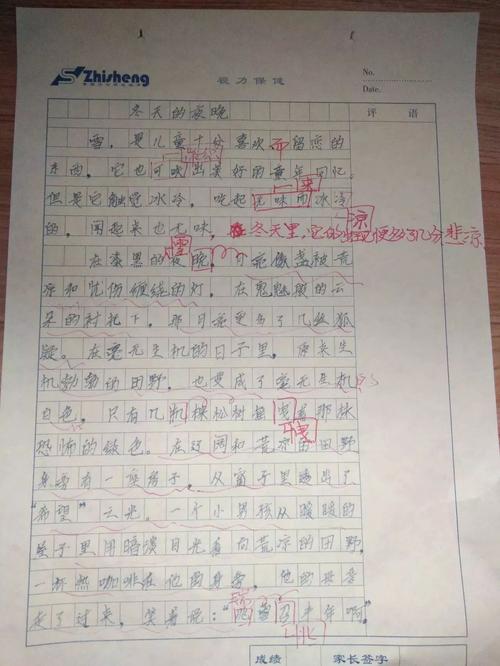 Zhisheng
视力保健
No.
Date.
评 语
冬天的夜晚
雪,是儿童十分喜欢而留恋的
东西。它也可映出美好的童年回忆。
但是它触觉冰冷,吃起无味而冰冷
来
的。闻起来也无味,在冬天里,它的便多了几分悲凉
凉
雪
在漆黑的夜晚。月亮像盏被
和忧伤缠绕的灯。在鬼魅般的云
朵的衬托下。那月亮更多了几丝狐
疑。在毫无生机的日子里。原来生
机勃勃的田野。也变成了毫无生机
白色。只有几棵松树留着那抹
恐怖的绿色。在辽阔和荒凉的田野
身旁有一座房子。从窗子里透出了
“希望”之光。一个小男孩从暖暖的
房子里用暗淡目光看向荒凉的田野。
一杯热咖啡在他的身旁。他的母亲
走了过来,笑着说:“瑞雪召丰年啊。”
兆
成绩
家长签字